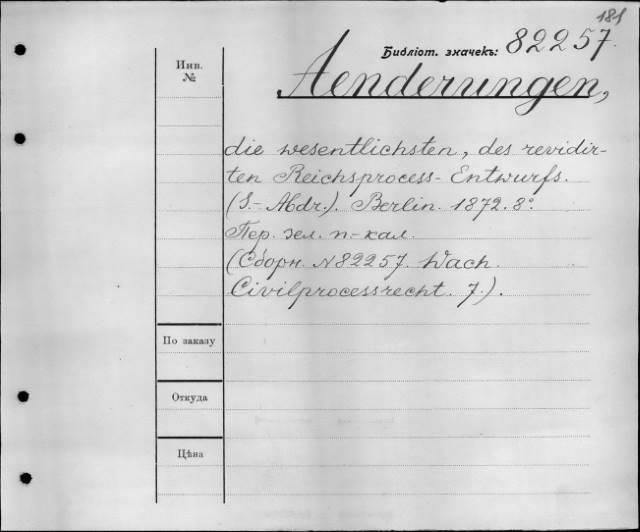 181
Библіот. значекъ: 82257.
Инв.
№
Aenderungen,
die wesentlichsten, des revidir-
ten Reichsprocess-Entwurfs.
(S.-Abdr.). Berlin. 1872. 8º
Пер. зел. п-кал.
(Сборн. № 82257. Wach.
Civilprocessrecht. 7.).
По заказу
Откуда
Цѣна